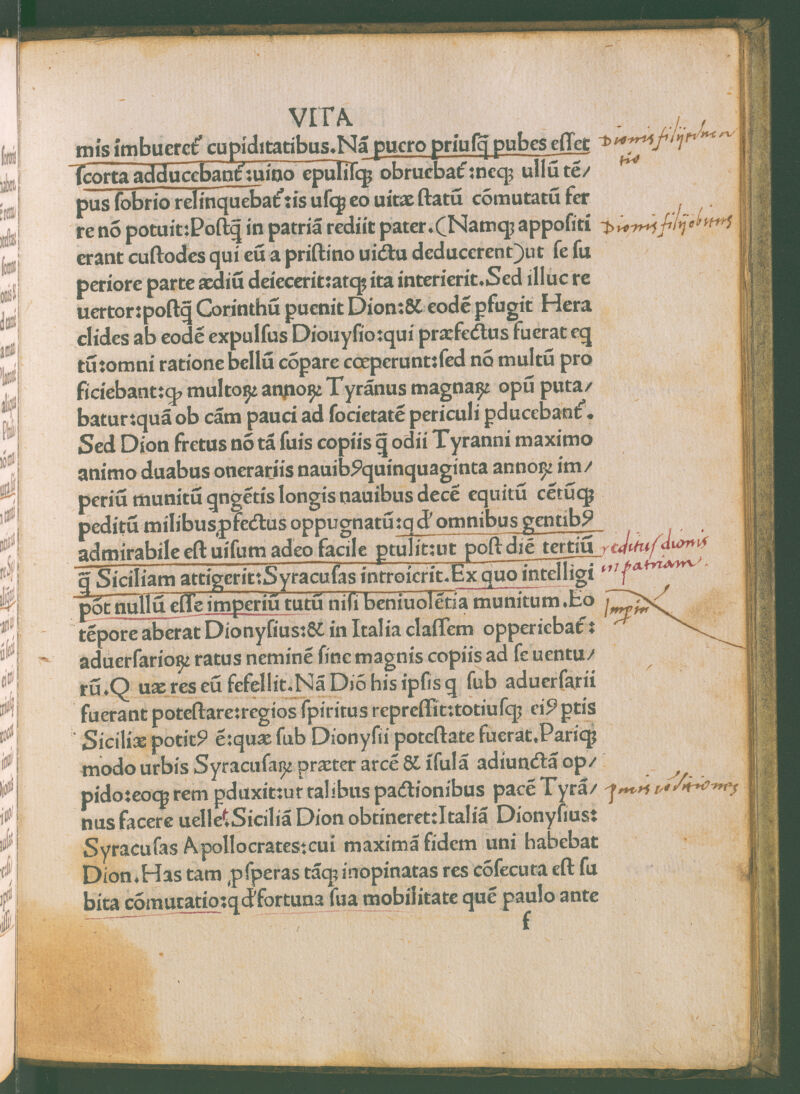 VITA
mis imbueret᷑ cupiditatibus.Nã puero priuſq̃ pubes eſſet
ſcorta adducebant᷑:uino epuliſqꝫ obruebat᷑:neqꝫ ullũ tẽ/
pus ſobrio relinquebat᷑:is uſqꝫ eo uitæ ſtatũ cõmutatũ fer
re nõ potuit:Poſtq̃ in patriã rediit pater.(Namqꝫ appoſiti
erant cuſtodes qui eũ a priſtino uictu deducerent)ut ſe ſu
periore parte ædiũ deiecerit:atqꝫ ita interierit.Sed illuc re
uertor:poſtq̃ Corinthũ puenit Dion:& eodẽ pfugit Hera
clides ab eodẽ expulſus Diouyſio:qui præfectus fuerat eq
tũ:omni ratione bellũ cõpare cœperunt:ſed nõ multũ pro
ficiebant:ꝙ multoꝝ annoꝝ Tyrãnus magnaꝝ opũ puta/
batur:quã ob cãm pauci ad ſocietatẽ periculi pducebant᷑.
Sed Dion fretus nõ tã ſuis copiis q̃ odii Tyranni maximo
animo duabus onerariis nauibꝰquinquaginta annoꝝ im/
periũ munitũ qngẽtis longis nauibus decẽ equitũ cẽtũqꝫ
peditũ milibus,pfectus oppugnatũ:q d' omnibus gentibꝰ
admirabile eſt uiſum adeo facile ptulit:ut poſt diẽ tertiũ
q̃ Siciliam attigerit:Syracuſas introierit.Ex quo intelligi
põt nullũ eſſe imperiũ tutũ niſi beniuolẽtia munitum.Eo
tẽpore aberat Dionyſius:& in Italia claſſem oppericbat᷑:
aduerſarioꝝ ratus neminẽ ſine magnis copiis ad ſe uentu/
rũ.Q uæ res eũ fefellit.Nã Diõ his ipſis q ſub aduerſarii
fuerant poteſtare:regios ſpiritus repreſſit:totiuſqꝫ eiꝰ ptis
Siciliæ potitꝰ ẽ:quæ ſub Dionyſii poteſtate fuerat.Pariqꝫ
modo urbis Syracuſaꝝ præter arcẽ & iſulã adiunctã op/
pido:eoqꝫ rem pduxit:ut talibus pactionibus pacẽ Tyrã/
nus facere uellet.Siciliã Dion obtineret:Italiã Dionyſius:
Syracuſas Apollocrates:cui maximã fidem uni habebat
Dion.Has tam ꝓſperas tãqꝫ inopinatas res cõſecuta eſt ſu
bita cõmutatio:q d'fortuna ſua mobilitate quẽ paulo ante
f
Dionis filij educa
tio
Dionis filij obitus
reditus dionis
in patriam.
Imperiũ